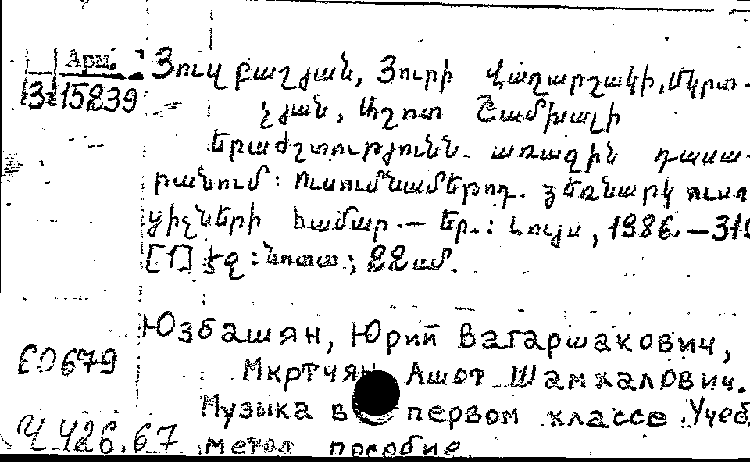 Арм.
Յուզբաշյան, Յուրի Վաղարշակի, Մկրտ-
3 15839
չյան, Աշոտ Շամխալի
Երաժշտությունն առաջին դասա-
րանում: Ուսումնամեթոդ. ձեռնարկ ուսո
ցիչների համար.— Եր.: Լույս, 1986.—319
[1] էջ : նոտա ; 22սմ.
Юзбашян, Юрий Вагаршакович,
60679
Мкртчян Ашот Шамхалович.
Музыка в первом классе Учеб
Ч 426.67
метод пособие